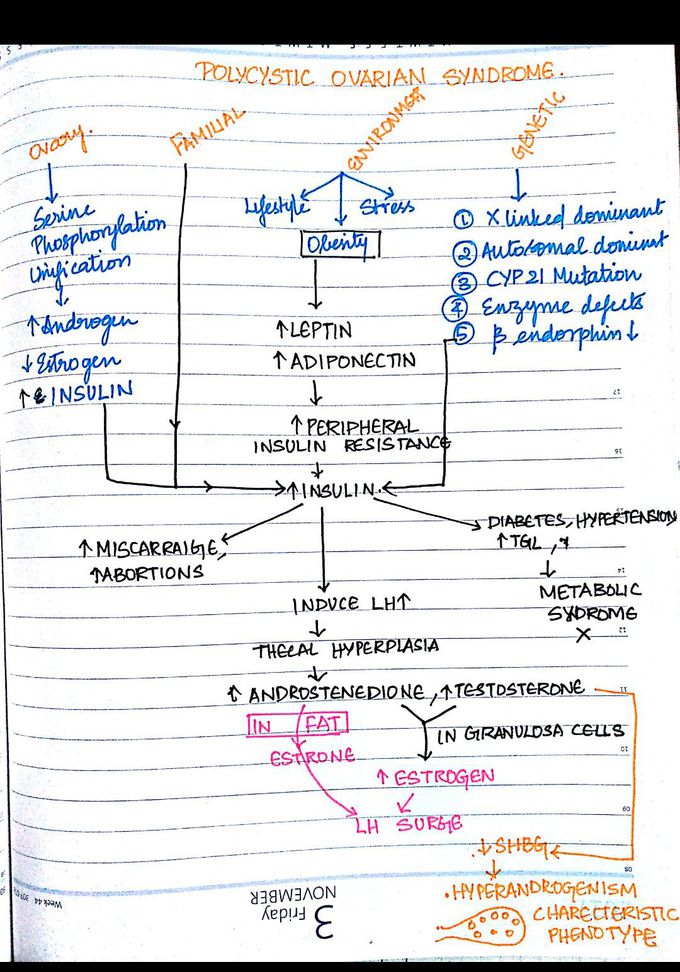 POLYCYSTIC OVARIAN SYNDROME.
Ovary.
FAMILIAL
ENVIRONMENT
GENETIC
Serine
Phosphorylation
Unification
↑ Androgen
↓ Estrogen
↑ INSULIN
Lifestyle
Stress
Obesity
↑ LEPTIN
↑ ADIPONECTIN
↑ PERIPHERAL
INSULIN RESISTANCE
① X linked dominant
② Autosomal dominat
③ CYP 21 Mutation
④ Enzyme defects
⑤ β endorphin ↓
↑ INSULIN.
↑ MISCARRAIGE,
↑ ABORTIONS
DIABETES, HYPERTENSION
↑ TGL ,
METABOLIC
SYDROME
X
INDUCE LH↑
THECAL HYPERPLASIA
↑ ANDROSTENEDIONE, ↑ TESTOSTERONE
IN FAT
ESTRONE
IN GRANULOSA CELLS
↑ ESTROGEN
LH SURGE
↓ SHBG
. HYPERANDROGENISM
CHARECTERISTIC
PHENOTYPE
17
16
14
12
11
10
09
08
3 Friday
NOVEMBER
Week 44